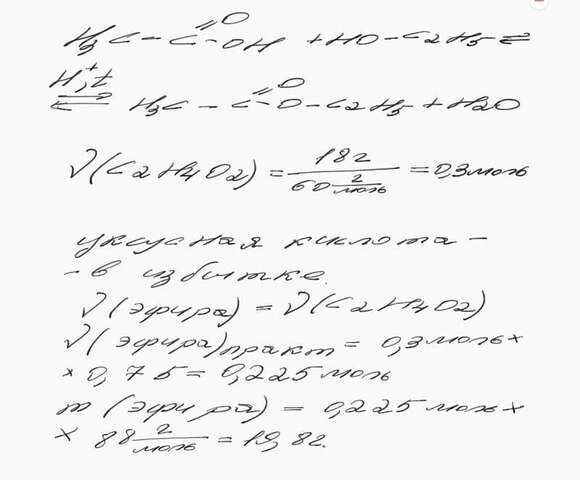 H3C - C =O OH + HO - C2H5 ⇌
H+, t
⇌ H3C - C =O O - C2H5 + H2O
ν(C2H4O2) = 18г / 60 г/моль = 0,3 моль
уксусная кислота -
- в избытке.
ν(эфира) = ν(C2H4O2)
ν(эфира)практ = 0,3 моль ×
× 0,75 = 0,225 моль
m (эфира) = 0,225 моль ×
× 88 г/моль = 19,8г.